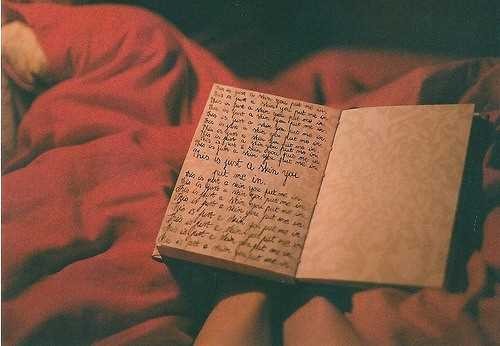 This is just a skin you put me in
This is just a skin you put me in.
This is just a skin you put me in.
This is just a skin you put me in.
This is just a skin you put me in.
This is just a skin you put me in.
This is just a skin you put me in.
This is just a skin you put me in.
This is just a skin you put me in.
This is just a skin you
put me in.
This is just a skin you put me in.
This is just a skin you put me in.
This is just a skin you put me in.
This is just a skin you put me in.
This is just a skin you put me in.
This is just a skin you put me in.
This is just a skin you put me in.